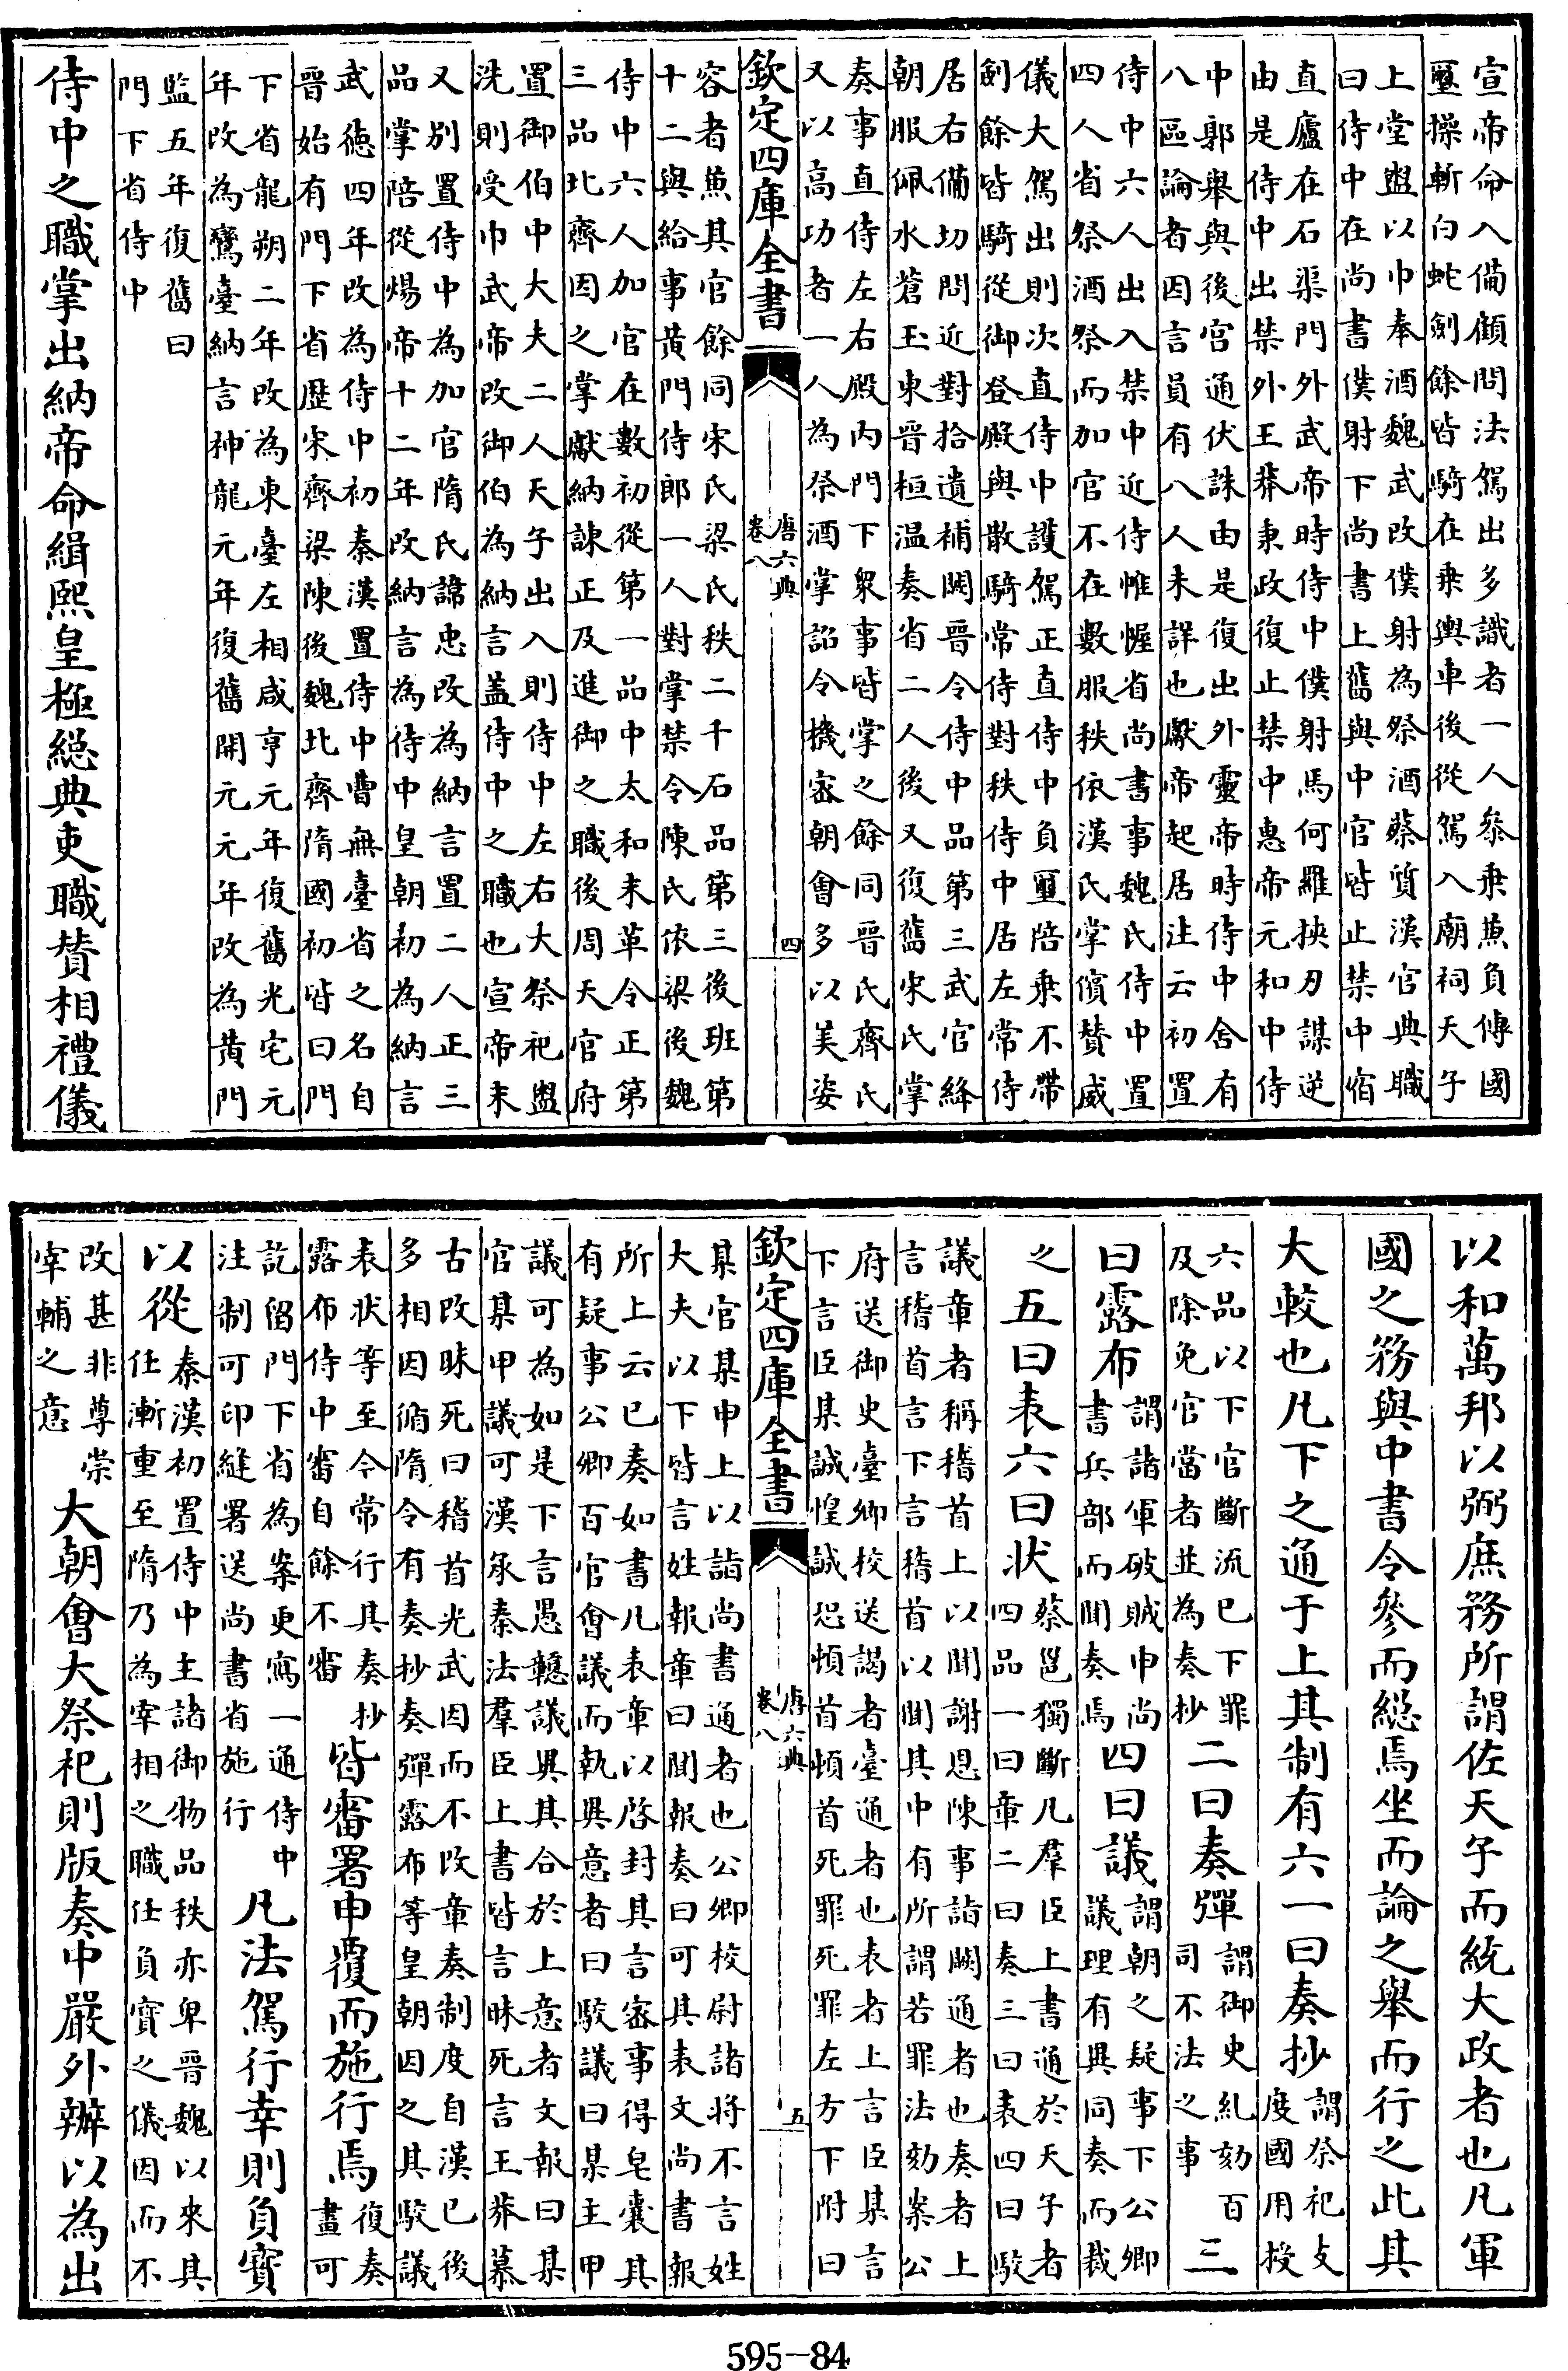 宣帝命入備顧問法駕出多識者一人叅乗兼負傳國
璽操斬白蛇劍餘皆騎在乗輿車後從駕入廟祠天子
上堂盥以巾奉酒魏武改僕射為祭酒蔡質漢官典職
曰侍中在尚書僕射下尚書上舊與中官皆止禁中宿
直廬在石渠門外武帝時侍中僕射馬何羅挾刃謀逆
由是侍中出禁外王莽秉政復止禁中惠帝元和中侍
中郭舉與後宮通伏誅由是復出外靈帝時侍中舍有
八區論者因言員有八人未詳也獻帝起居注云初置
侍中六人出入禁中近侍帷幄省尚書事魏氏侍中置
四人省祭酒祭而加官不在數服秩依漢氏掌儐賛威
儀大駕出則次直侍中護駕正直侍中負璽陪乗不帶
劍餘皆騎從御登殿與散騎常侍對秩侍中居左常侍
居右備切問近對拾遺補闕晉令侍中品第三武官絳
朝服佩水蒼玉東晉桓溫奏省二人後又復舊宋氏掌
奏事直侍左右殿内門下衆事皆掌之餘同晉氏齊氏
又以高功者一人為祭酒掌詔令機密朝會多以美姿
欽定四庫全書
唐六典
卷八
四
容者兼其官餘同宋氏梁氏秩二千石品第三後班第
十二與給事黄門侍郎一人對掌禁令陳氏依梁後魏
侍中六人加官在數初從第一品中太和末革令正第
三品北齊因之掌獻納諫正及進御之職後周天官府
置御伯中大夫二人天子出入則侍中左右大祭祀盥
洗則受巾武帝改御伯為納言盖侍中之職也宣帝末
又别置侍中為加官隋氏諱忠改為納言置二人正三
品掌陪從煬帝十二年改納言為侍中皇朝初為納言
武德四年改為侍中初秦漢置侍中曹無臺省之名自
晉始有門下省歴宋齊梁陳後魏北齊隋國初皆曰門
下省龍朔二年改為東臺左相咸亨元年復舊光宅元
年改為鸞臺納言神龍元年復舊開元元年改為黄門
監五年復舊曰
門下省侍中
侍中之職掌出納帝命緝熙皇極緫典吏職賛相禮儀
以和萬邦以弼庶務所謂佐天子而統大政者也凡軍
國之務與中書令參而緫焉坐而論之舉而行之此其
大較也凡下之通于上其制有六一曰奏抄
謂祭祀支
度國用授
六品以下官斷流已下罪
及除免官當者並為奏抄
二曰奏彈
謂御史糺劾百
司不法之事
三
曰露布
謂諸軍破賊申尚
書兵部而聞奏焉
四曰議
謂朝之疑事下公卿
議理有異同奏而裁
之
五曰表六曰狀
蔡邕獨斷凡羣臣上書通於天子者
四品一曰章二曰奏三曰表四曰駮
議章者稱稽首上以聞謝恩陳事詣闕通者也奏者上
言稽首言下言稽首以聞其中有所謂若罪法劾案公
府送御史臺卿校送謁者臺通者也表者上言臣某言
下言臣某誠惶誠恐頓首頓首死罪死罪左方下附曰
欽定四庫全書
唐六典
卷八
五
某官某甲上以詣尚書通者也公卿校尉諸將不言姓
大夫以下皆言姓報章曰聞報奏曰可其表文尚書報
所上云已奏如書凡表章以啓封其言密事得皂囊其
有疑事公卿百官會議而執異意者曰駮議曰某主甲
議可為如是下言愚戇議異其合於上意者文報曰某
官某甲議可漢承秦法羣臣上書皆言昧死言王莽慕
古改昧死曰稽首光武因而不改章奏制度自漢已後
多相因循隋令有奏抄奏彈露布等皇朝因之其駮議
表狀等至今常行其奏抄
露布侍中審自餘不審
皆審署申覆而施行焉
復奏
畫可
訖留門下省為案更寫一通侍中
注制可印縫署送尚書省施行
凡法駕行幸則負寶
以從
秦漢初置侍中主諸御物品秩亦卑晉魏以來其
任漸重至隋乃為宰相之職任負寶之儀因而不
改甚非尊崇
宰輔之意
大朝會大祭祀則版奏中嚴外辦以為出
595-84